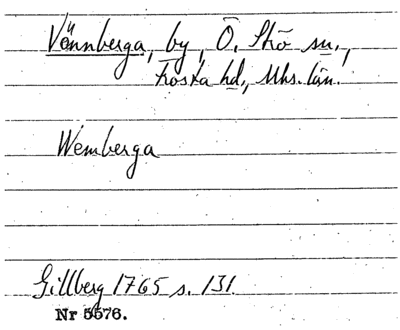 Vännberga, by, Ö. Strö sn.,
Frosta hd., Mhs. län.
Wemberga
Gillberg 1765 s. 131.
Nr 5576.